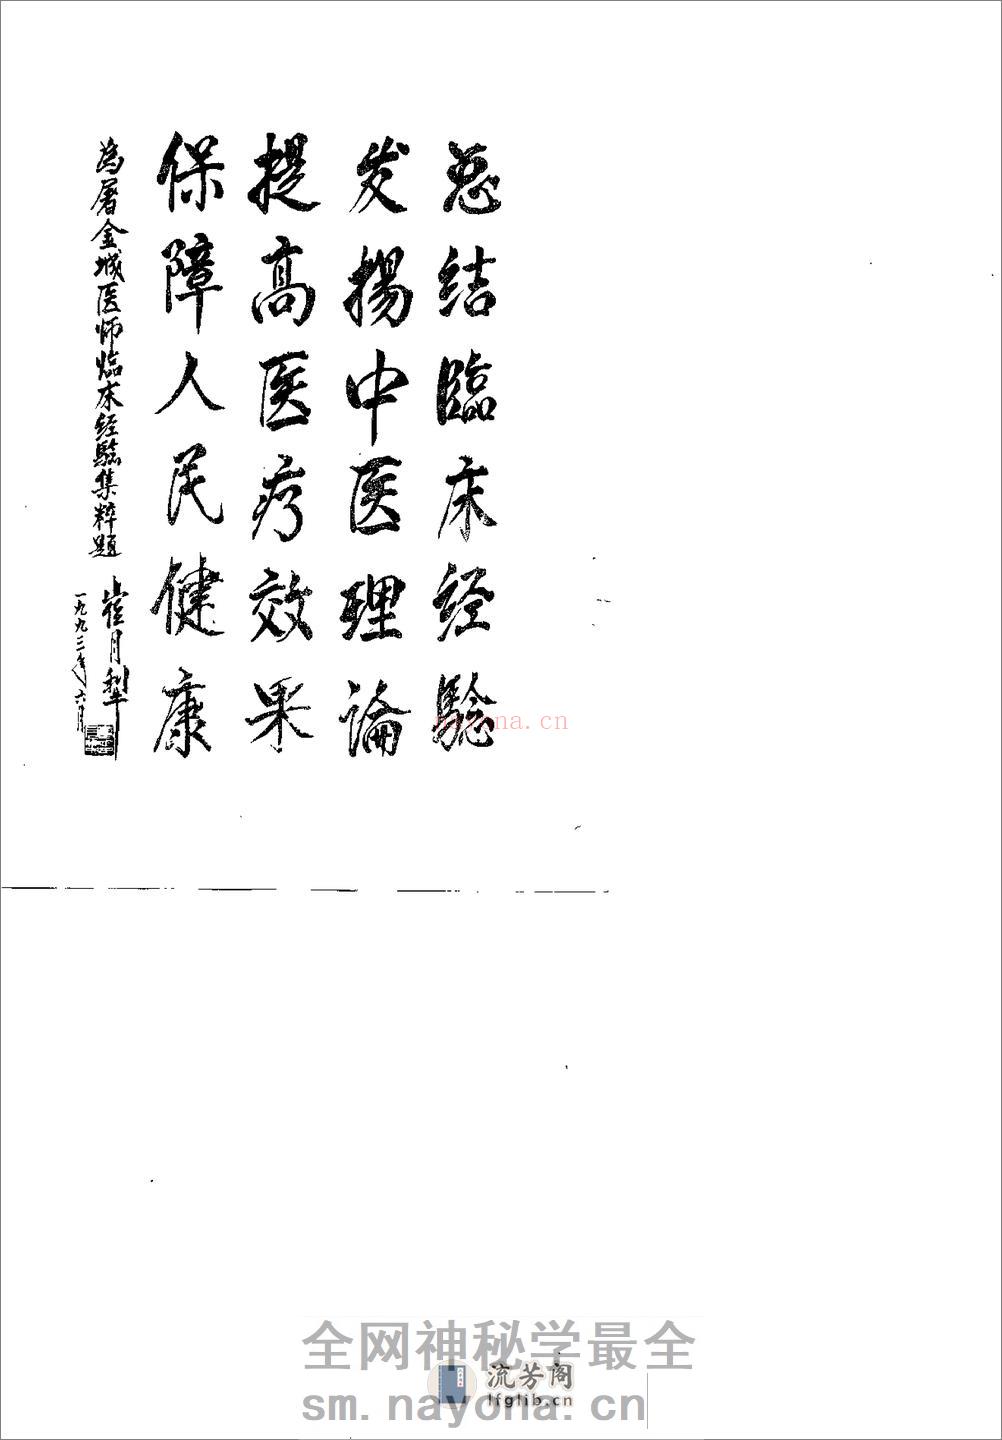 总结臨床经验
发揚中医理論
提高医疗效果
保障人民健康
為屠金城医师临床经驗集粹题
崔月犁
一九九二年六月
nayona.cn
全网神秘学最全
流芳阁
lfglib.cn
sm.nayona.cn